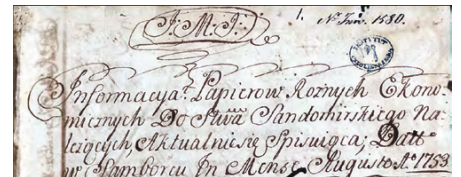 J: M: J:
1. No Inw. 1580.
Informacya Papierow Roznych Ekono=
micznych Do Stwa Sandomirskiego Na=
lezących, Aktualnie się Spisuiąca, Datt
w Samborcu In Mense Augusto Ao 1753